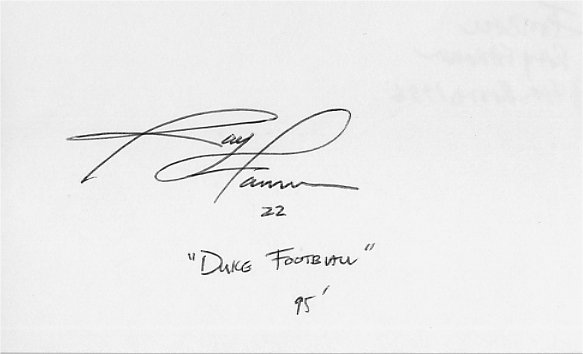 Ray Farmer
22
"DUKE FOOTBALL"
95'